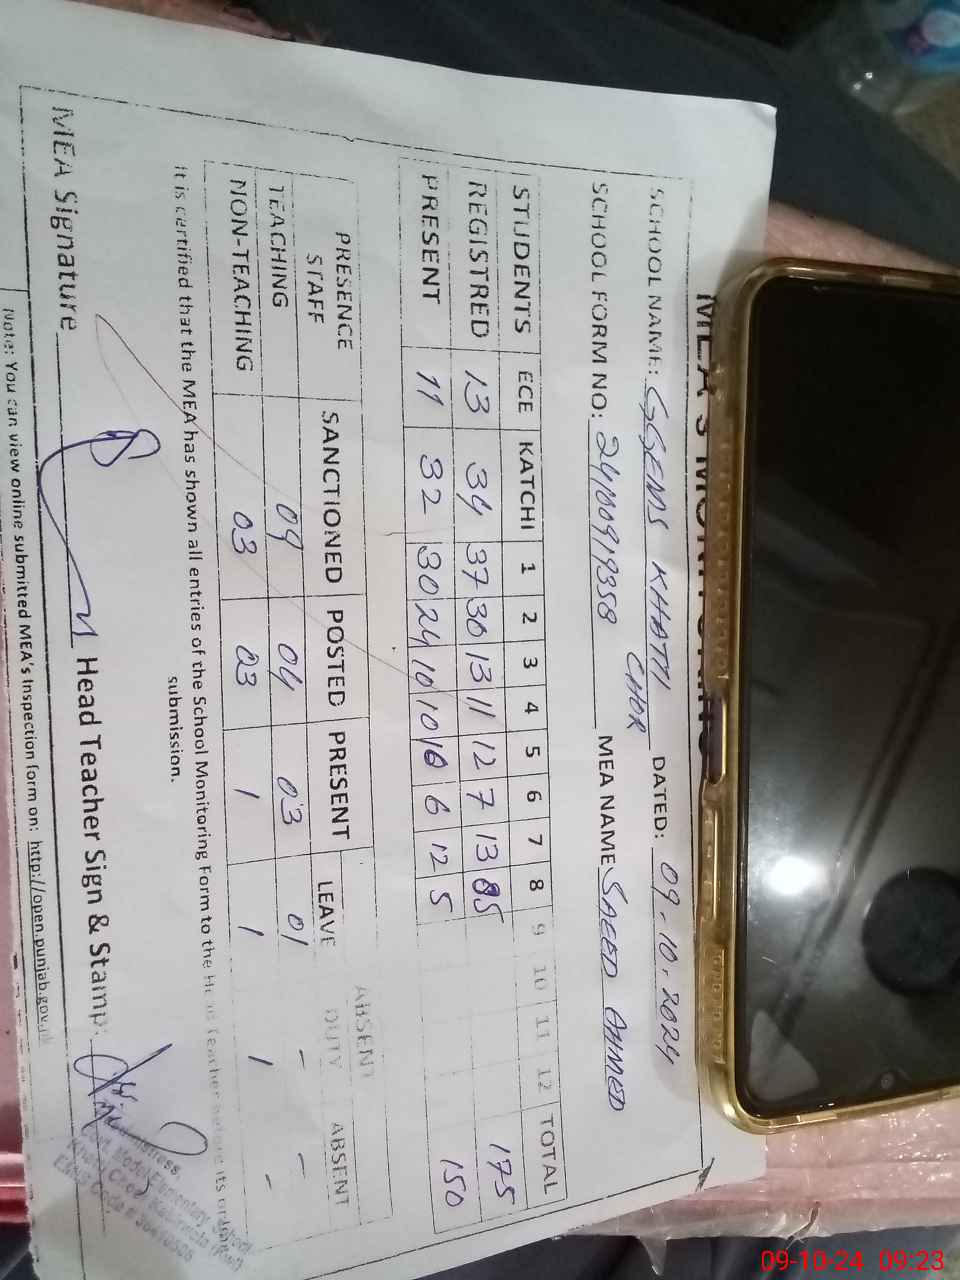 SCHOOL NAME: GGEMS KHATI CHOR DATED: 09.10.2024
SCHOOL FORM NO: MEA NAME SAEED AHMED
STUDENTS ECE KATCHI 1 2 3 4 5 6 7 8 9 10 11 12 TOTAL
REGISTRED 13 34 37 30 13 11 12 7 13 05 175
PRESENT 11 32 30 24 10 10 10 6 12 5 150
PRESENCE STAFF SANCTIONED POSTED PRESENT LEAVE ABSENT DUTY ABSENT
TEACHING 09 04 03 01 - -
NON-TEACHING 03 03 1 1 1 -
It is certified that the MEA has shown all entries of the School Monitoring Form to the Head Teacher before its
submission.
MEA Signature Head Teacher Sign & Stamp:
Model Elementary School
Note: You can view online submitted MEA's Inspection form on: http://open.punjab.gov.pk
09-10-24 09:23